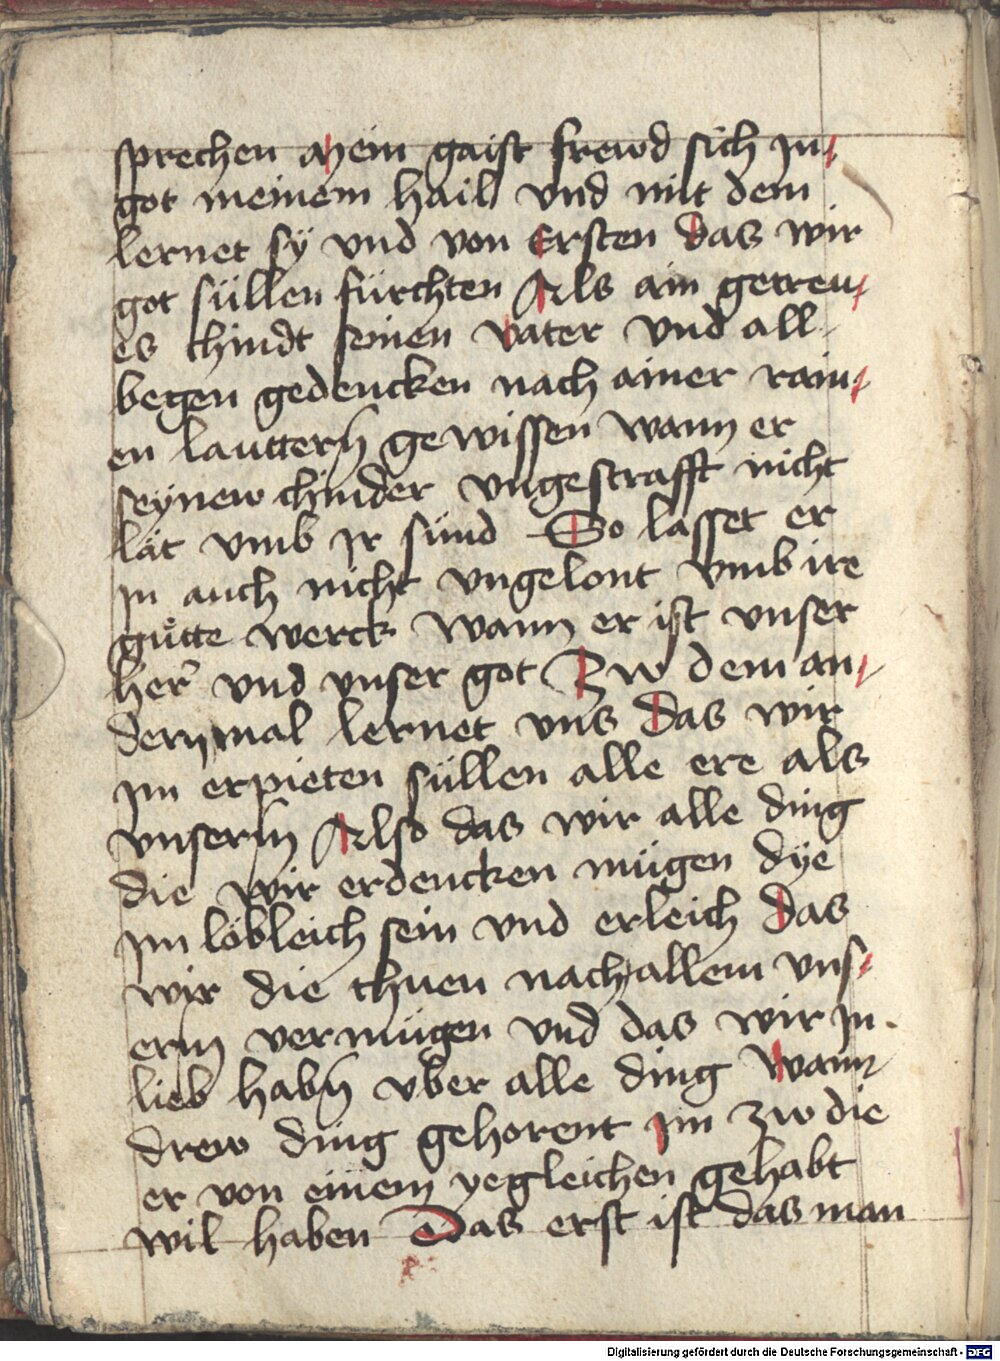 sprechen Mein gaist frewd sich in
got meinem hail vnd mit dem
lernet sy vnd von Ersten das wir
got süllen fürchten Als ain getreu-
es chindt seinen vater vnd all-
begen gedencken nach ainer rain-
en lauttern gewissen wann er
seynew chinder vngestrafft nicht
lät vmb ir sünd So lasset er
in auch nicht vngelont vmb ire
gůtte werck wann er ist vnser
her vnd vnser got Zw dem an-
dern mal lernet vns das wir
im erpieten süllen alle ere als
vnserm Also das wir alle ding
die wir erdencken mügen dye
im löbleich sein vnd erleich das
wir die thuen nach allem vns-
erm vermügen vnd das wir in
lieb habn vber alle ding wann
drew ding gehorent im zw die
er von einem yegleichen gehabt
wil haben Das erst ist das man
Digitalisierung gefördert durch die Deutsche Forschungsgemeinschaft - DFG